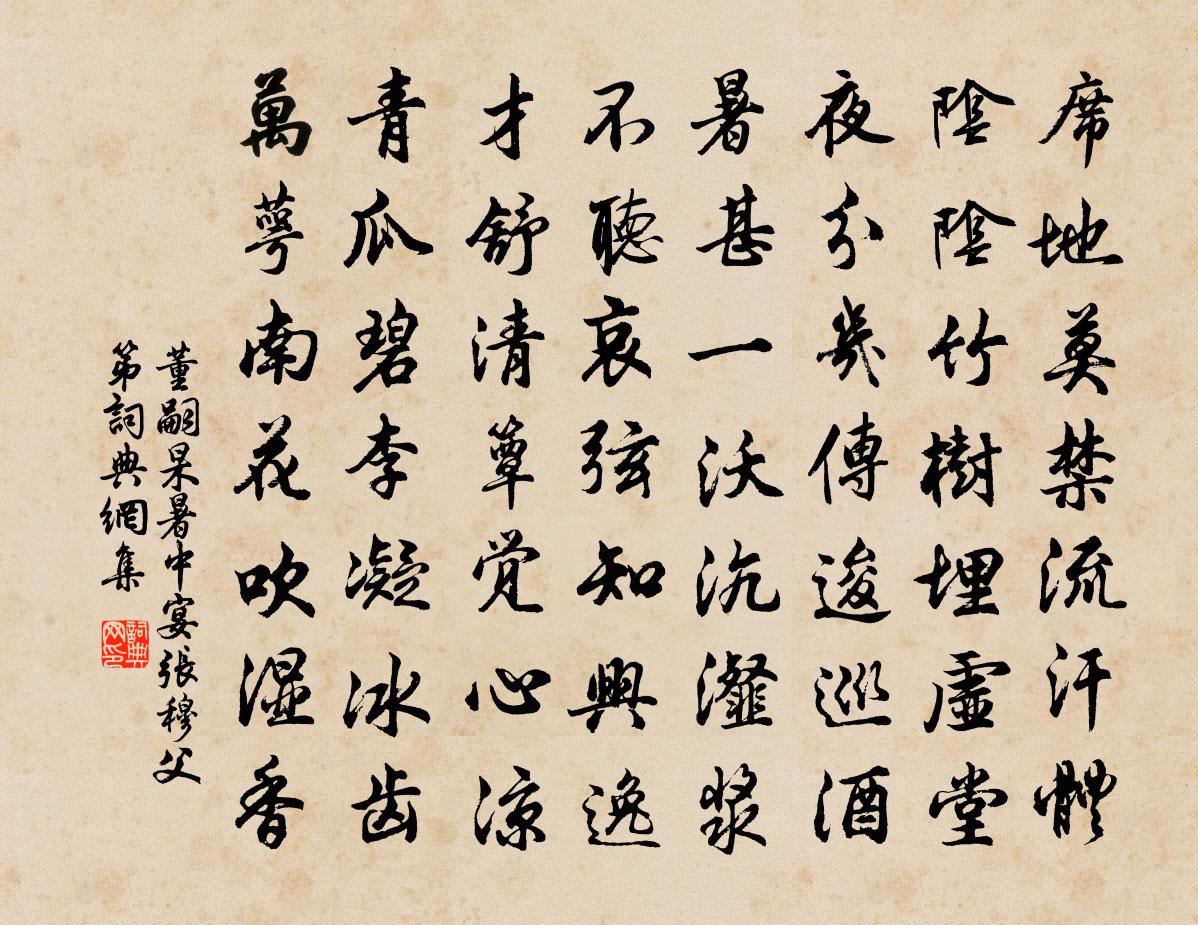 席地莫禁流汗體
陰陰竹樹埋虛堂
夜分幾傳逡巡酒
暑甚一沃沆瀣漿
不聽哀弦知興逸
才舒清簟觉心凉
青瓜碧李凝冰齿
萬萼南花吹湿香
董嗣杲暑中宴張穆父
第詞典網集
詞典网印